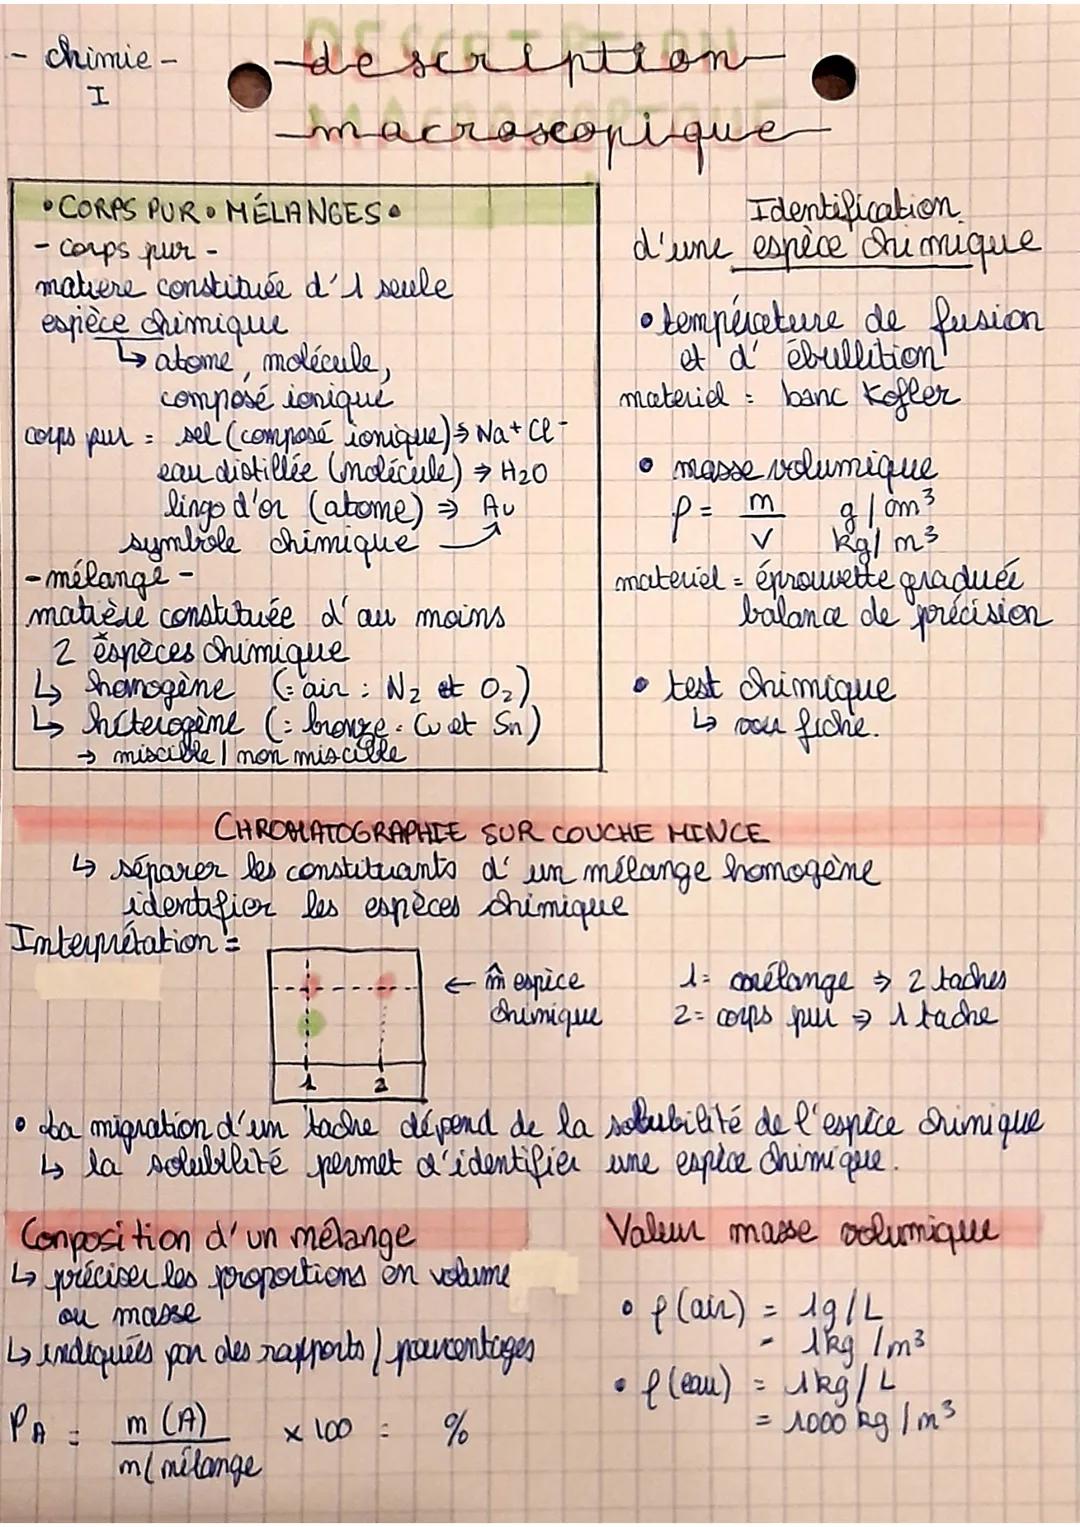 - chimie -
I
description
macroscopique
• CORPS PUR • MÉLANGES •
- corps pur -
matiere constituée d'1 seule
espièce chimique
↳ atome, molécule,
composé ionique
corps pur = sel (composé ionique) ⇒ Na+ Cl-
eau distillée (molécule) ⇒ H2O
lingo d'or (atome) ⇒ Au
symbole chimique
- mélange -
matière constituée d'au moins
2 espèces chimique
↳ homogène (= air : N2 et O2)
↳ hétérogène (= bronze = Cu et Sn)
→ miscible / non miscible
Identification
d'une espèce chimique
• température de fusion
et d'ébullition
materiel = banc Kofler
• masse volumique
ρ = m g / cm³
V kg / m³
materiel = éprouvette graduée
balance de précision
• test chimique
↳ voir fiche.
CHROMATOGRAPHIE SUR COUCHE MINCE
↳ séparer les constituants d'un mélange homogène
identifier les espèces chimique
Interprétation =
← m̂ espèce
chimique
1 2
1 = mélange ⇒ 2 taches
2 = corps pur ⇒ 1 tache
• La migration d'un tache dépend de la solubilité de l'espèce chimique
↳ la solubilité permet d'identifier une espèce chimique.
Composition d'un mélange
↳ préciser les proportions en volume
ou masse
↳ indiqués par des rapports / pourcentages
PA = m (A) x 100 = %
m( mélange
Valeur masse volumique
• ρ (air) = 1g / L
= 1kg / m³
• ρ (eau) = 1kg / L
= 1000 kg / m³